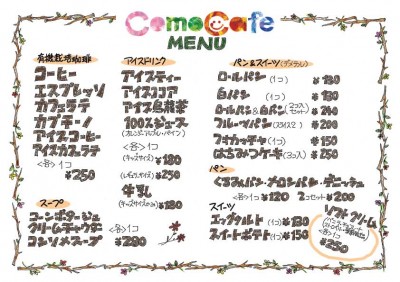 ComoCafe
MENU
有機栽培珈琲
コーヒー
エスプレッソ
カフェラテ
カプチーノ
アイスコーヒー
アイスカフェラテ
<各>1コ
¥250
スープ
コーンポタージュ
クリームチャウダー
コンソメスープ
<各>1コ
¥280
アイスドリンク
アイスティー
アイスココア
アイス烏龍茶
100%ジュース
(オレンジ・アップル・パイン)
<各>1コ
(キッズサイズ) ¥180
(レギュラーサイズ) ¥250
牛乳
(キッズサイズのみ) ¥180
パン&スイーツ
ロールパン (1コ) ¥130
白パン (1コ) ¥130
ロールパン&白パン (2コ入セット) ¥240
フルーツパン (スライス2) ¥200
フォカッチャ (1コ) ¥150
はちみつケーキ (3コ入) ¥250
パン
くるみパン・メロンパン・デニッシュ
<各>1コ ¥120 2コセット ¥200
スイーツ
エッグタルト (1コ) ¥130
スイートポテト (1コ) ¥150
ソフトクリーム
<各>1コ
¥250